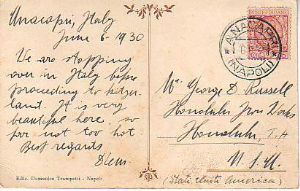 Anacapri, Italy
June 6 - 1930
We are stopping
over in Italy before
proceeding to
land. It is very
beautiful here, so
far not too hot
Best regards
ANACAPRI
(NAPOLI)
Mr. George D. Russell
Honolulu Iron Works
Honolulu, T.H
U.S.A.
(Stati Uniti America)
Ediz. Concordez Trampetti - Napoli